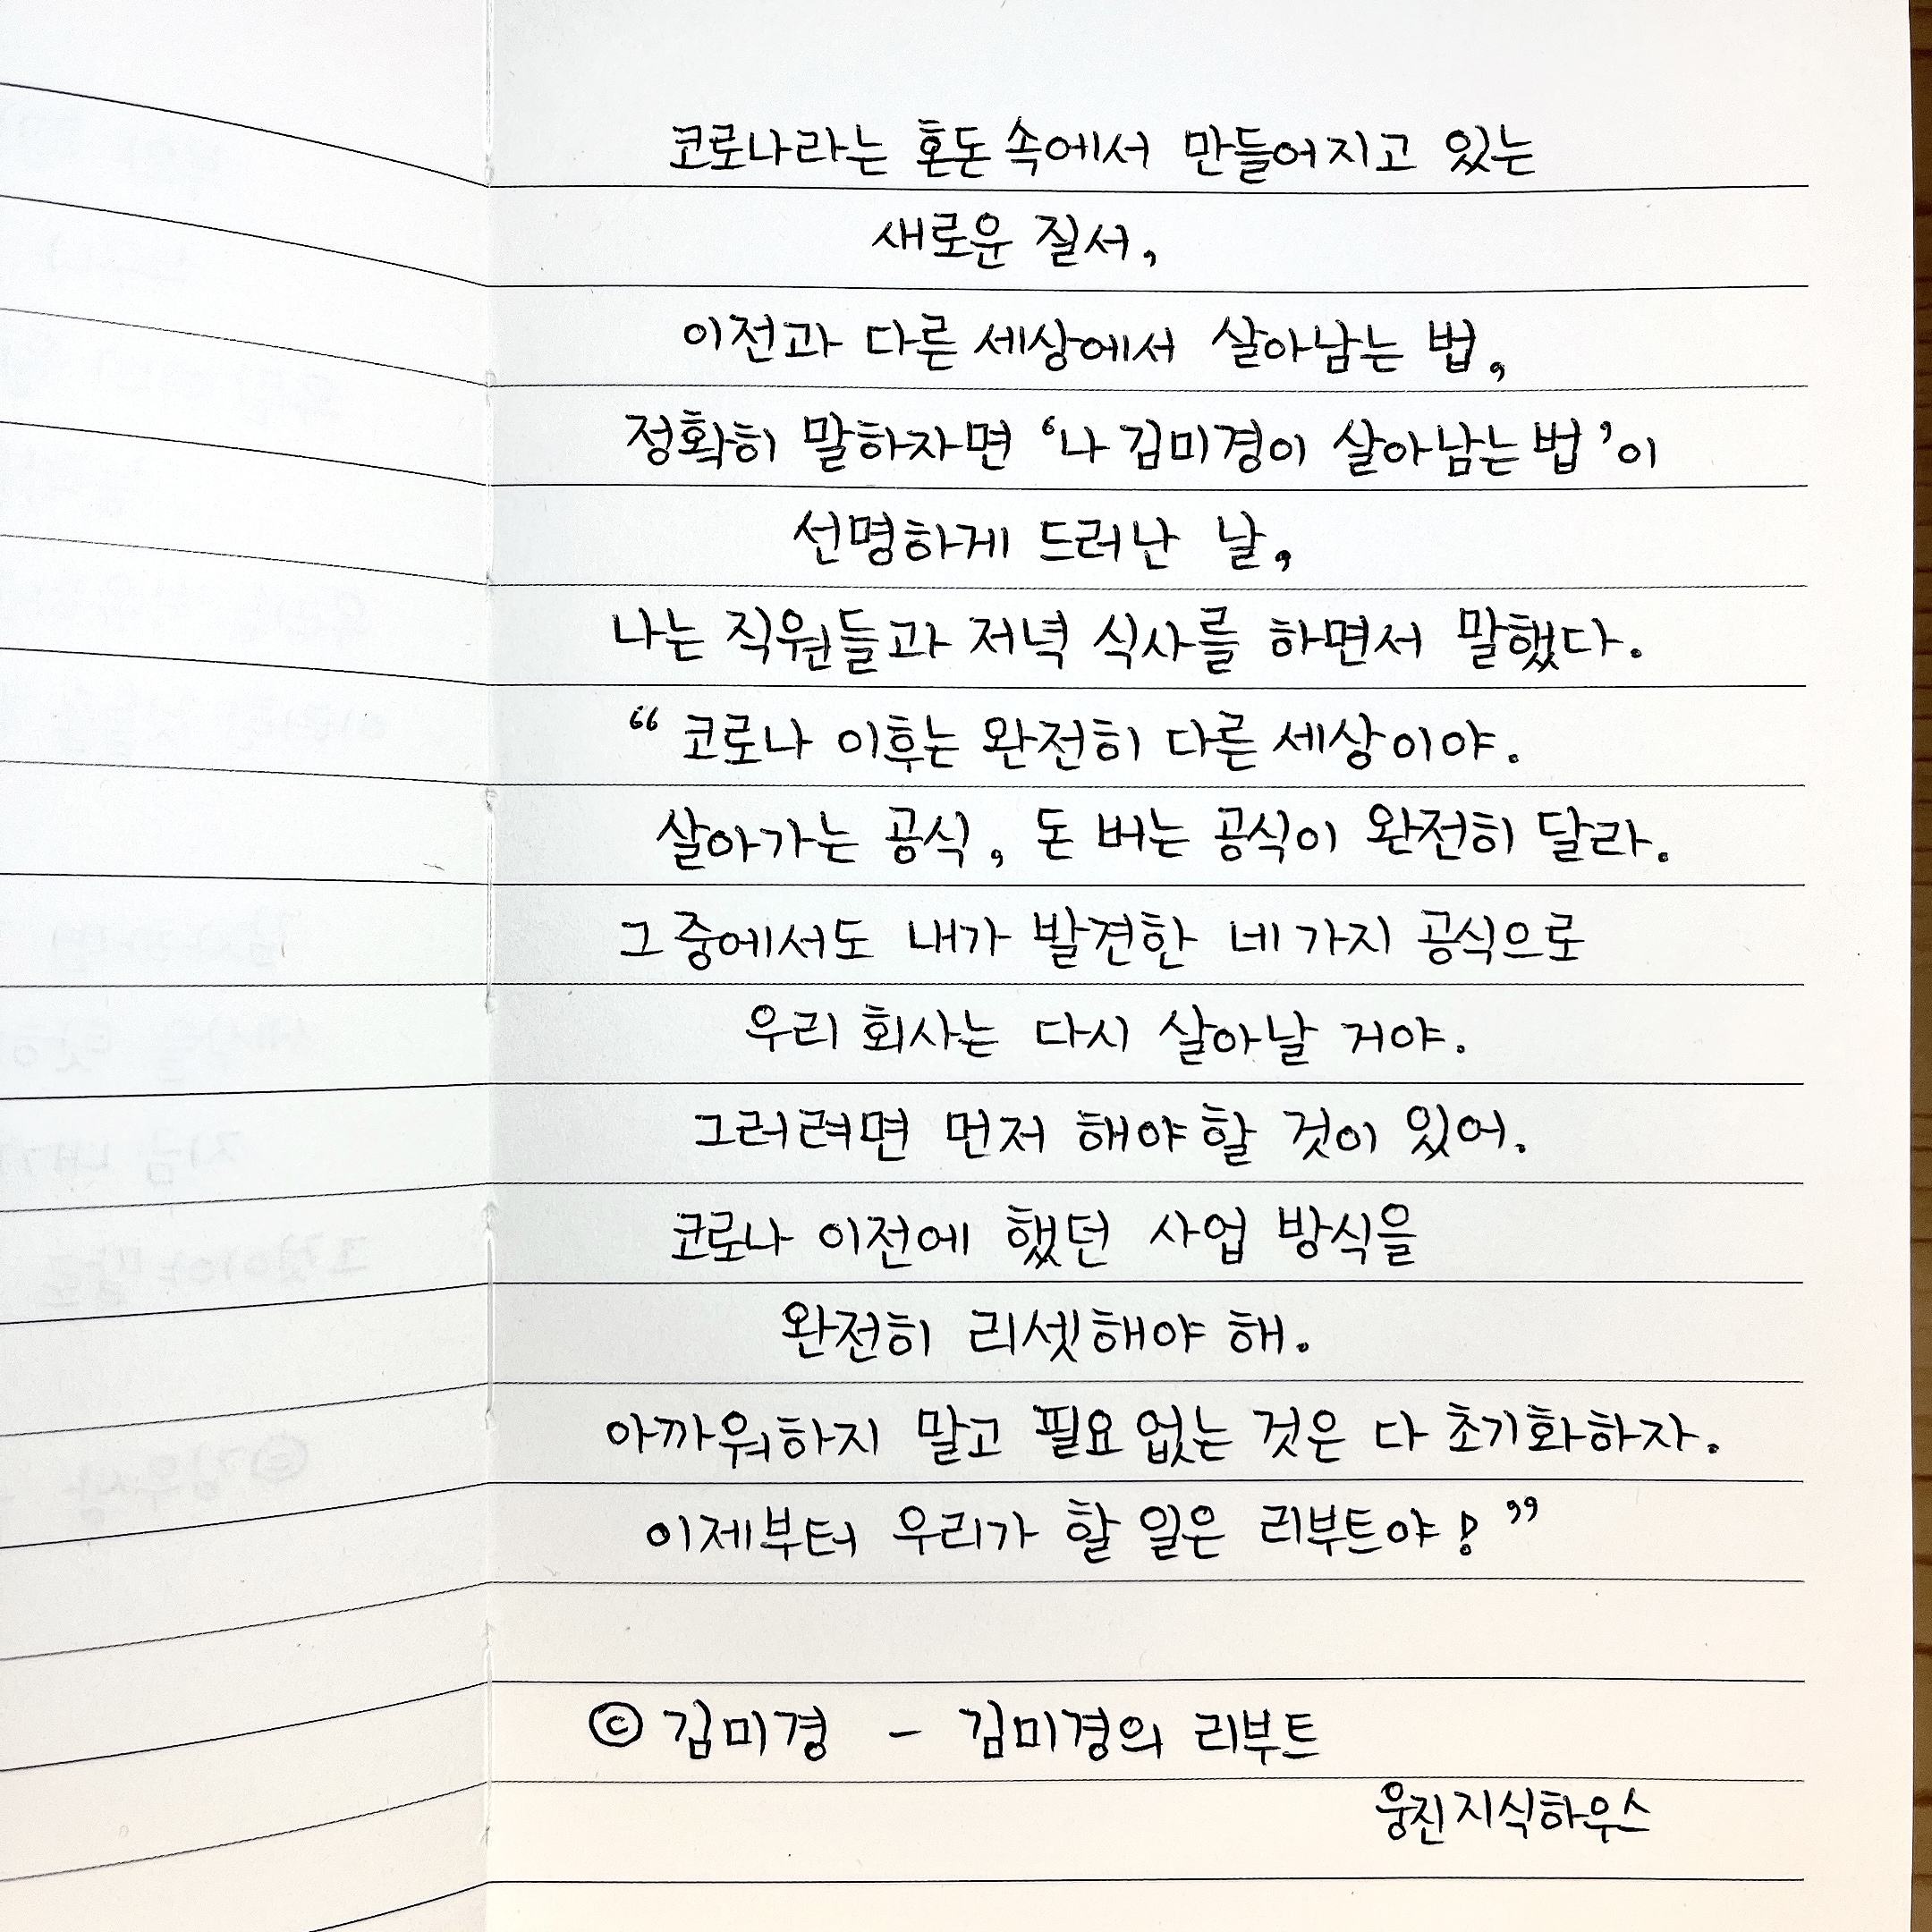 코로나라는 혼돈 속에서 만들어지고 있는
새로운 질서,
이전과 다른 세상에서 살아남는 법,
정확히 말하자면 ‘나 김미경이 살아남는 법’이
선명하게 드러난 날,
나는 직원들과 저녁 식사를 하면서 말했다.
“코로나 이후는 완전히 다른 세상이야.
살아가는 공식, 돈 버는 공식이 완전히 달라.
그 중에서도 내가 발견한 네 가지 공식으로
우리 회사는 다시 살아날 거야.
그러려면 먼저 해야 할 것이 있어.
코로나 이전에 했던 사업 방식을
완전히 리셋해야 해.
아까워하지 말고 필요 없는 것은 다 초기화하자.
이제부터 우리가 할 일은 리부트야!”
© 김미경 - 김미경의 리부트
웅진지식하우스